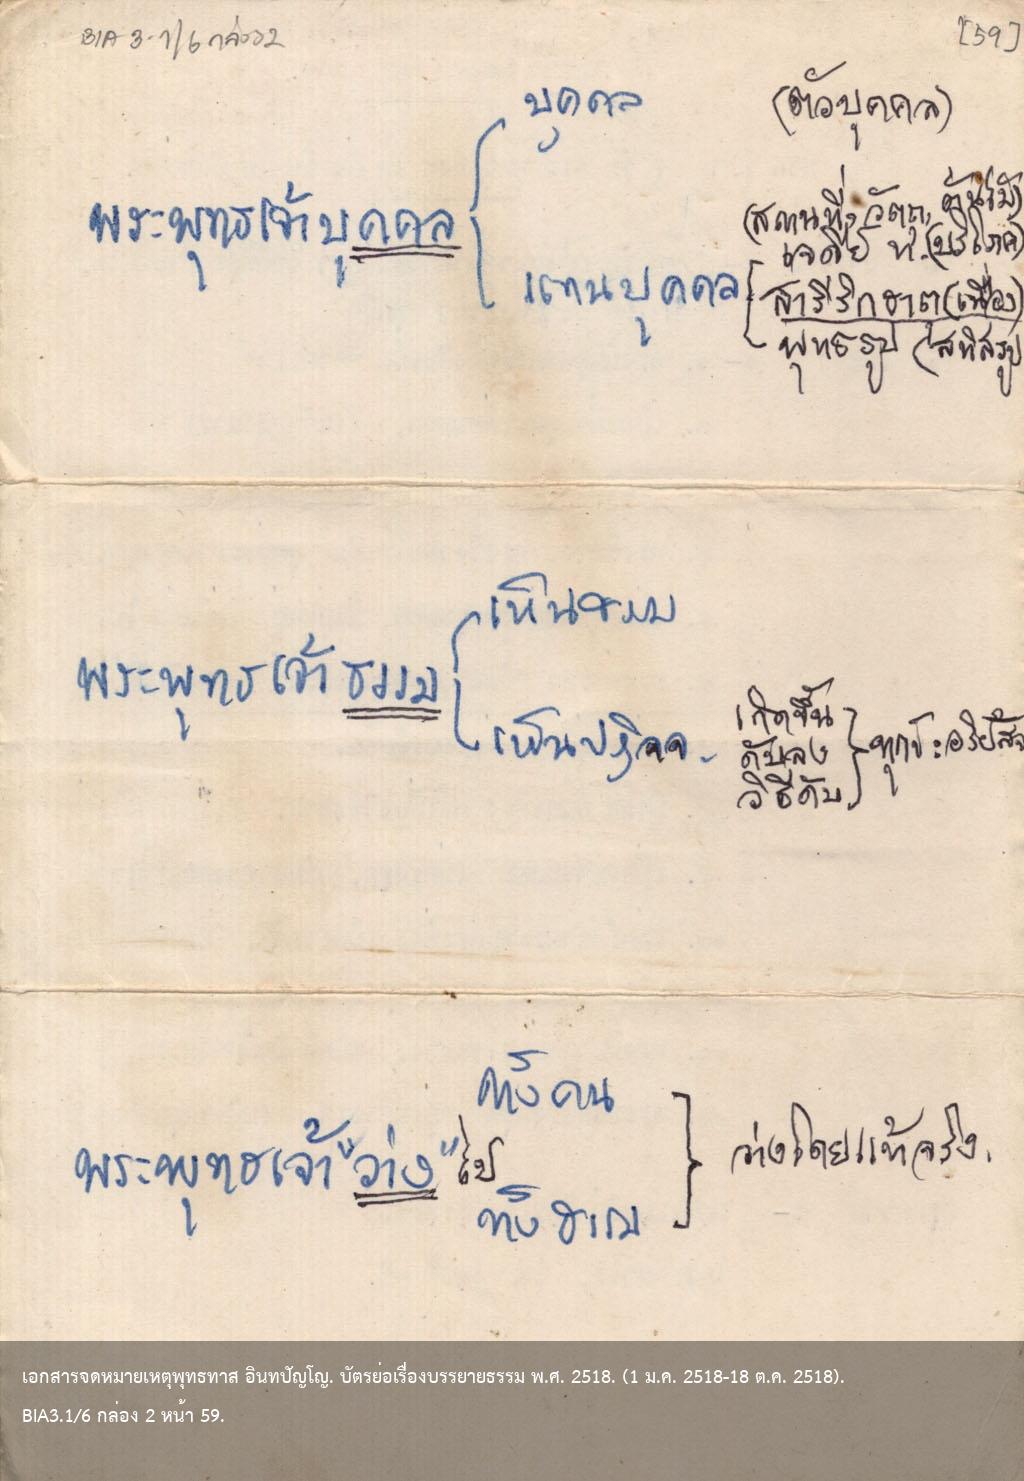 BIA 3-1/6 กล่อง2
[59]
บุคคล (ตัวบุคคล)
(สถานที่, วัตถุ, ต้นไม้)
พระพุทธเจ้าบุคคล
เจดีย์ ฯ. (บริโภค)
แทนบุคคล
สารีริกธาตุ (เนื่อง)
พุทธรูป (สทิสรูป
เห็นธรรม
พระพุทธเจ้าธรรม
เกิดขึ้น
เห็นปฏิจจ. ดับลง ทุกข์: อริยสัจ
วิธีดับ
ทั้งคน
พระพุทธเจ้า "ว่าง" ไป ว่างโดยแท้จริง.
ทั้งธรรม
เอกสารจดหมายเหตุพุทธทาส อินทปัญโญ. บัตรย่อเรื่องบรรยายธรรม พ.ศ. 2518. (1 ม.ค. 2518-18 ต.ค. 2518).
BIA3.1/6 กล่อง 2 หน้า 59.